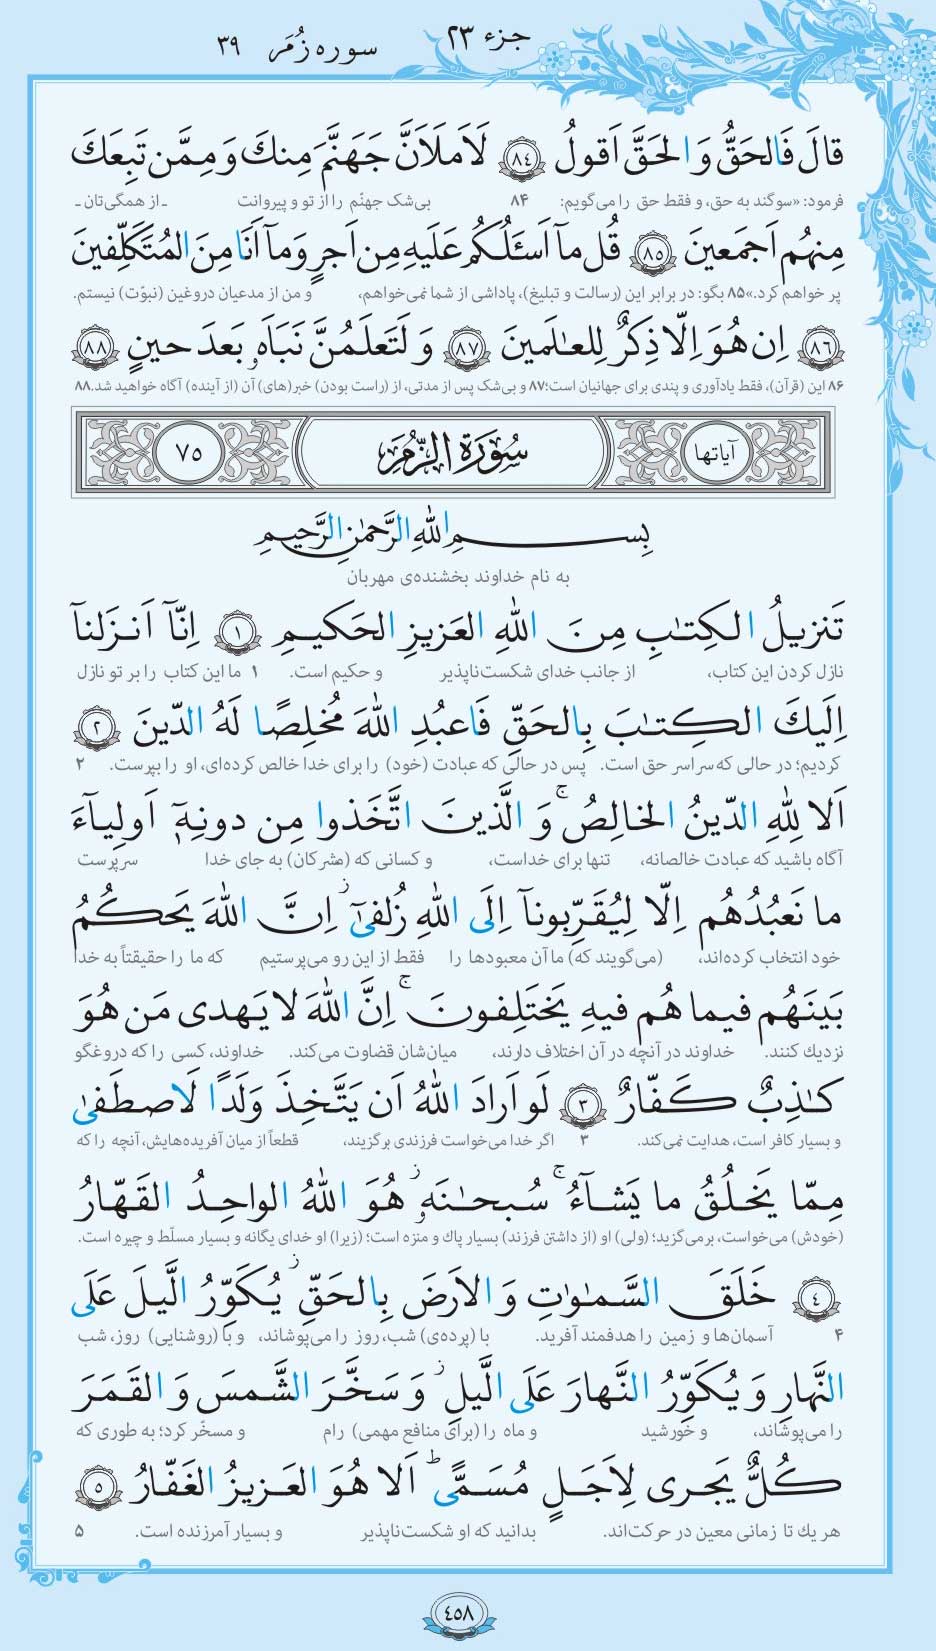 جزء ۲۳ سوره زُمَر ۳۹
قالَ فَالحَقُّ وَ الحَقَّ اَقولُ ﴿٨٤﴾ لَاَملَاَنَّ جَهَنَّمَ مِنكَ وَ مِمَّن تَبِعَكَ
فرمود: «سوگند به حق، و فقط حق را می‌گویم: ۸۴ بی‌شک جهنّم را از تو و پیروانت ـ از همگی‌تان ـ
مِنهُم اَجمَعینَ ﴿٨٥﴾ قُل مآ اَسـَٔلُكُم عَلَیهِ مِن اَجرٍ وَ مآ اَنَا مِنَ المُتَكَلِّفینَ
پر خواهم کرد.» ۸۵ بگو: در برابر این (رسالت و تبلیغ)، پاداشی از شما نمی‌خواهم، و من از مدعیان دروغین (نبوّت) نیستم.
﴿٨٦﴾ اِن هُوَ اِلّا ذِكرٌ لِلعـٰلَمینَ ﴿٨٧﴾ وَ لَتَعلَمُنَّ نَبَاَهٗ بَعدَ حینٍ ﴿٨٨﴾
۸۶ این (قرآن)، فقط یادآوری و پندی برای جهانیان است؛ ۸۷ و بی‌شک پس از مدتی، از (راست بودن) خبر(های) آن (از آینده) آگاه خواهید شد. ۸۸
آیاتها سُورَةُ الزُّمَرِ ٧٥
بِسمِ اللّٰهِ الرَّحمٰنِ الرَّحیمِ
به نام خداوند بخشنده‌ی مهربان
تَنزیلُ الكِتـٰبِ مِنَ اللّٰهِ العَزیزِ الحَكیمِ ﴿١﴾ اِنّآ اَنزَلنآ
نازل کردن این کتاب، از جانب خدای شکست‌ناپذیر و حکیم است. ۱ ما این کتاب را بر تو نازل
اِلَیكَ الكِتـٰبَ بِالحَقِّ فَاعبُدِ اللّٰهَ مُخلِصًا لَهُ الدّینَ ﴿٢﴾
کردیم؛ در حالی که سراسر حق است. پس در حالی که عبادت (خود) را برای خدا خالص کرده‌ای، او را بپرست. ۲
اَلا لِلّٰهِ الدّینُ الخالِصُ ۚ وَ الَّذینَ اتَّخَذوا مِن دونِهٖٓ اَولِیآءَ
آگاه باشید که عبادت خالصانه، تنها برای خداست، و کسانی که (مشرکان) به جای خدا سرپرست
ما نَعبُدُهُم اِلّا لِیُقَرِّبونآ اِلَی اللّٰهِ زُلفیٰٓ ۡز اِنَّ اللّٰهَ یَحكُمُ
خود انتخاب کرده‌اند، (می‌گویند که) ما آن معبودها را فقط از این رو می‌پرستیم که ما را حقیقتاً به خدا
بَینَهُم فیما هُم فیهِ یَختَلِفونَ ۚ اِنَّ اللّٰهَ لا یَهدی مَن هُوَ
نزدیك کنند. خداوند در آنچه در آن اختلاف دارند، میان‌شان قضاوت می‌کند. خداوند، کسی را که دروغگو
كـٰذِبٌ كَفّارٌ ﴿٣﴾ لَو اَرادَ اللّٰهُ اَن یَتَّخِذَ وَلَدًا لَاصطَفیٰ
و بسیار کافر است، هدایت نمی‌کند. ۳ اگر خدا می‌خواست فرزندی برگزیند، قطعاً از میان آفریده‌هایش، آنچه را که
مِمّا یَخلُقُ ما یَشآءُ ۚ سُبحـٰنَهٗ ز هُوَ اللّٰهُ الواحِدُ القَهّارُ
(خودش) می‌خواست، برمی‌گزید؛ (ولی) او (از داشتن فرزند) بسیار پاك و منزه است؛ (زیرا) او خدای یگانه و بسیار مسلّط و چیره است.
﴿٤﴾ خَلَقَ السَّمـٰوٰتِ وَ الاَرضَ بِالحَقِّ ز یُكَوِّرُ الَّیلَ عَلَی
۴ آسمان‌ها و زمین را هدفمند آفرید. با (پرده‌ی) شب، روز را می‌پوشاند، و با (روشنایی) روز، شب
النَّهارِ وَ یُكَوِّرُ النَّهارَ عَلَی الَّیلِ ز وَ سَخَّرَ الشَّمسَ وَ القَمَرَ
را می‌پوشاند، و خورشید و ماه را (برای منافع مهمی) رام و مسخّر کرد؛ به طوری که
كُلٌّ یَجری لِاَجَلٍ مُسَمًّی ؕ اَلا هُوَ العَزیزُ الغَفّارُ ﴿٥﴾
هر یك تا زمانی معین در حرکت‌اند. بدانید که او شکست‌ناپذیر و بسیار آمرزنده است. ۵
٤٥٨